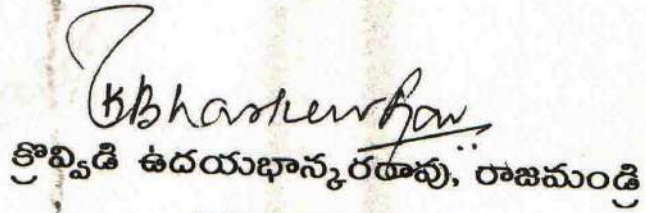 KBhaskerRao
క్రొవ్విడి ఉదయభాన్కరరావు, రాజమండ్రి